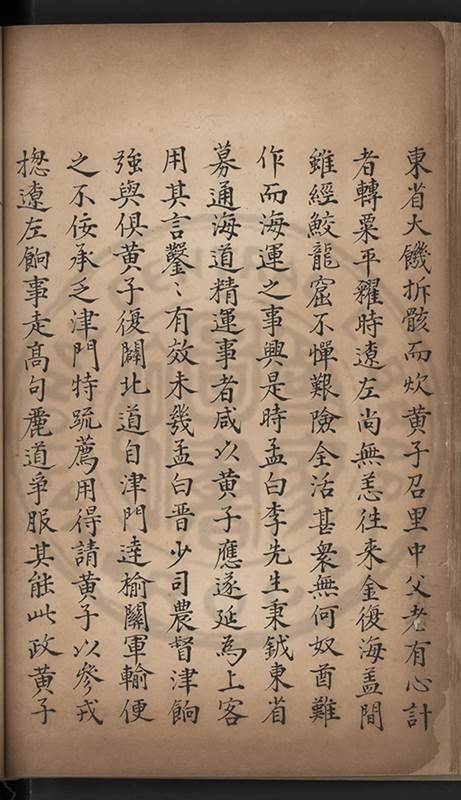 東省大饑拆骸而炊黄子召里中父老有心計
者轉粟平糴時遼左尚無恙徃來金復海盖間
雖經鮫龍窟不憚艱險全活甚衆無何奴酋難
作而海運之事興是時孟白李先生秉鉞東省
募通海道精運事者咸以黄子應遂延為上客
用其言鑿〻有效未幾孟白晋少司農督津餉
強與俱黄子復闢北道自津門達榆關軍輸便
之不佞承乏津門特疏薦用得請黄子以參戎
揔遼左餉事走髙句麗道爭服其能此政黄子